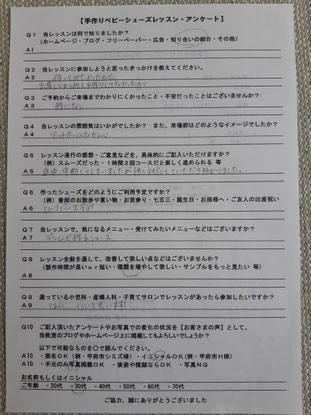 【手作りベビーシューズレッスン・アンケート】
Q1 当レッスンは何で知りましたか?
(ホームページ・ブログ・フリーペーパー・広告・知り合いの紹介・その他)
A1
Q2 当レッスンに参加しようと思ったきっかけを教えてください。
A2
Q3 ご予約からご来場までわかりにくかったこと・不安だったことはございませんか?
A3 特になし
Q4 当レッスンの雰囲気はいかがでしたか? また、来場前はどのようなイメージでしたか?
A4 アットホームな
Q5 レッスン進行の感想・ご意見などを、具体的にご記入いただけますか?
(例)スムーズだった・1時間2回コースだと楽しく進められる 等
A5
Q6 作ったシューズをどのようにご利用予定ですか?
(例)普段のお散歩や買い物・お宮参り・七五三・誕生日・お孫様へ・ご友人の出産祝い
A6
Q7 当レッスンで、気になるメニュー・受けてみたいメニューなどはございますか?
A7
Q8 レッスン全般を通して、改善して欲しい点などはございませんか?
(製作時間が長いor短い・種類を増やして欲しい・サンプルをもっと見たい 等)
A8
Q9 通っている小児科・産婦人科・子育てサロンでレッスンがあったら参加したいですか?
A9 はい。
Q10 ご記入頂いたアンケートやお写真での変化の状況を【お客さまの声】として、
当教室のブログやホームページ上に掲載してもよろしいでしょうか?
以下で可能なものを○で囲んでください。
A10 ・実名OK(例・甲府市シミズ様)・イニシャルOK(例・甲府市H様)
A10 ・手元のみ写真掲載OK ・後姿や横顔ならOK ・写真NG
お名前もしくはイニシャル
ご年齢 ・20代 ・30代 ・40代 ・50代 ・60代 ・70代
ご協力、誠にありがとうございました